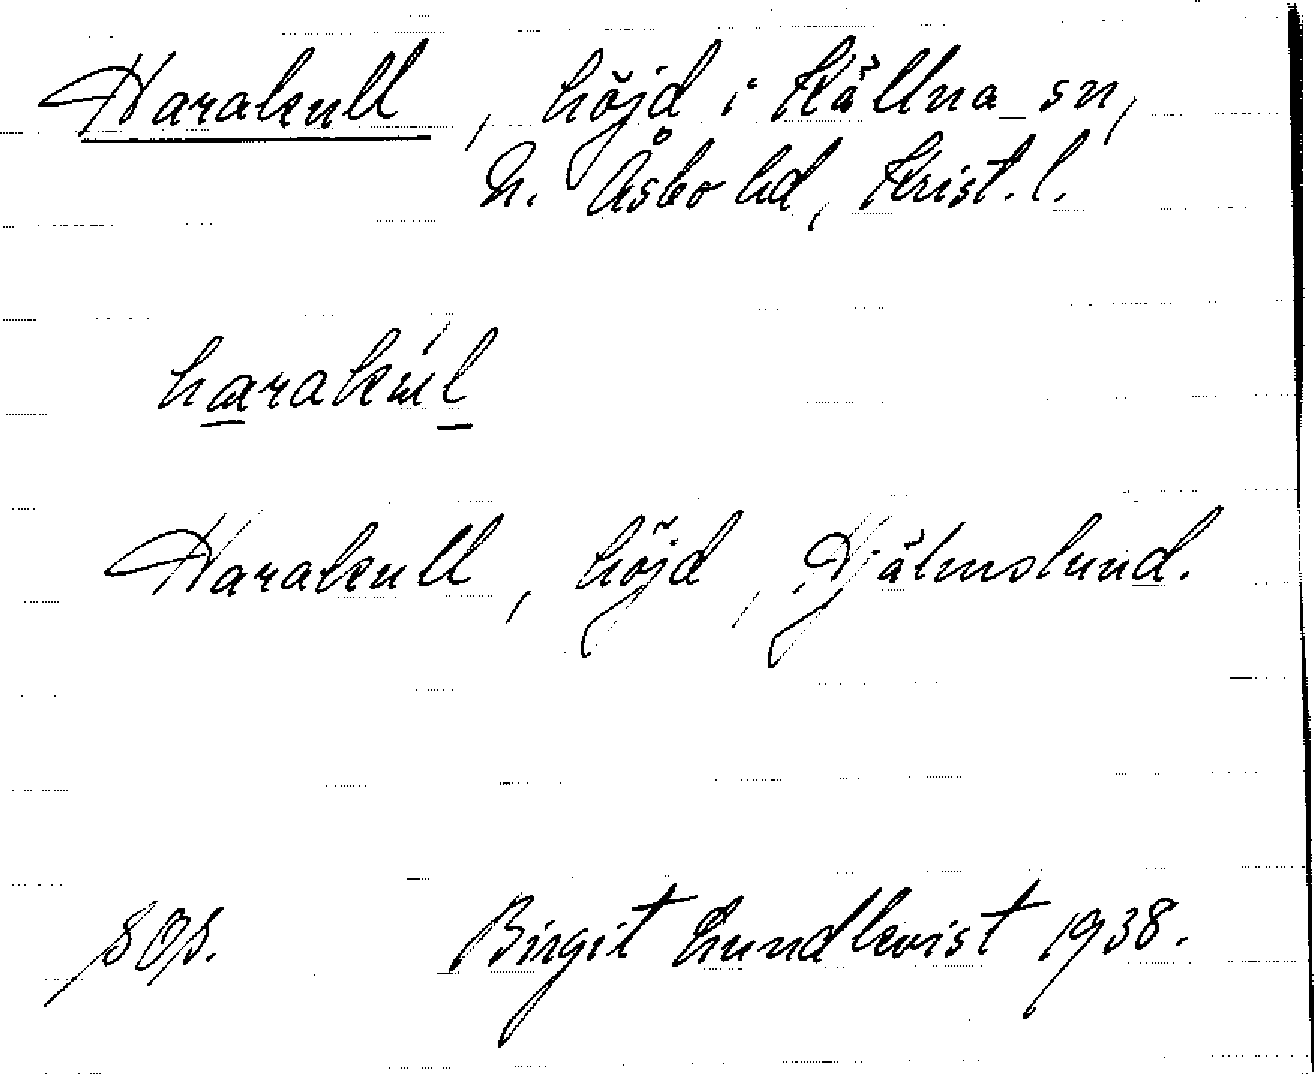 Harakull, höjd i Källna sn,
N. Åsbo hd, Krist. l.
harakul
Harakull, höjd, Hjälmslund.
Birgit Lundkvist 1938.